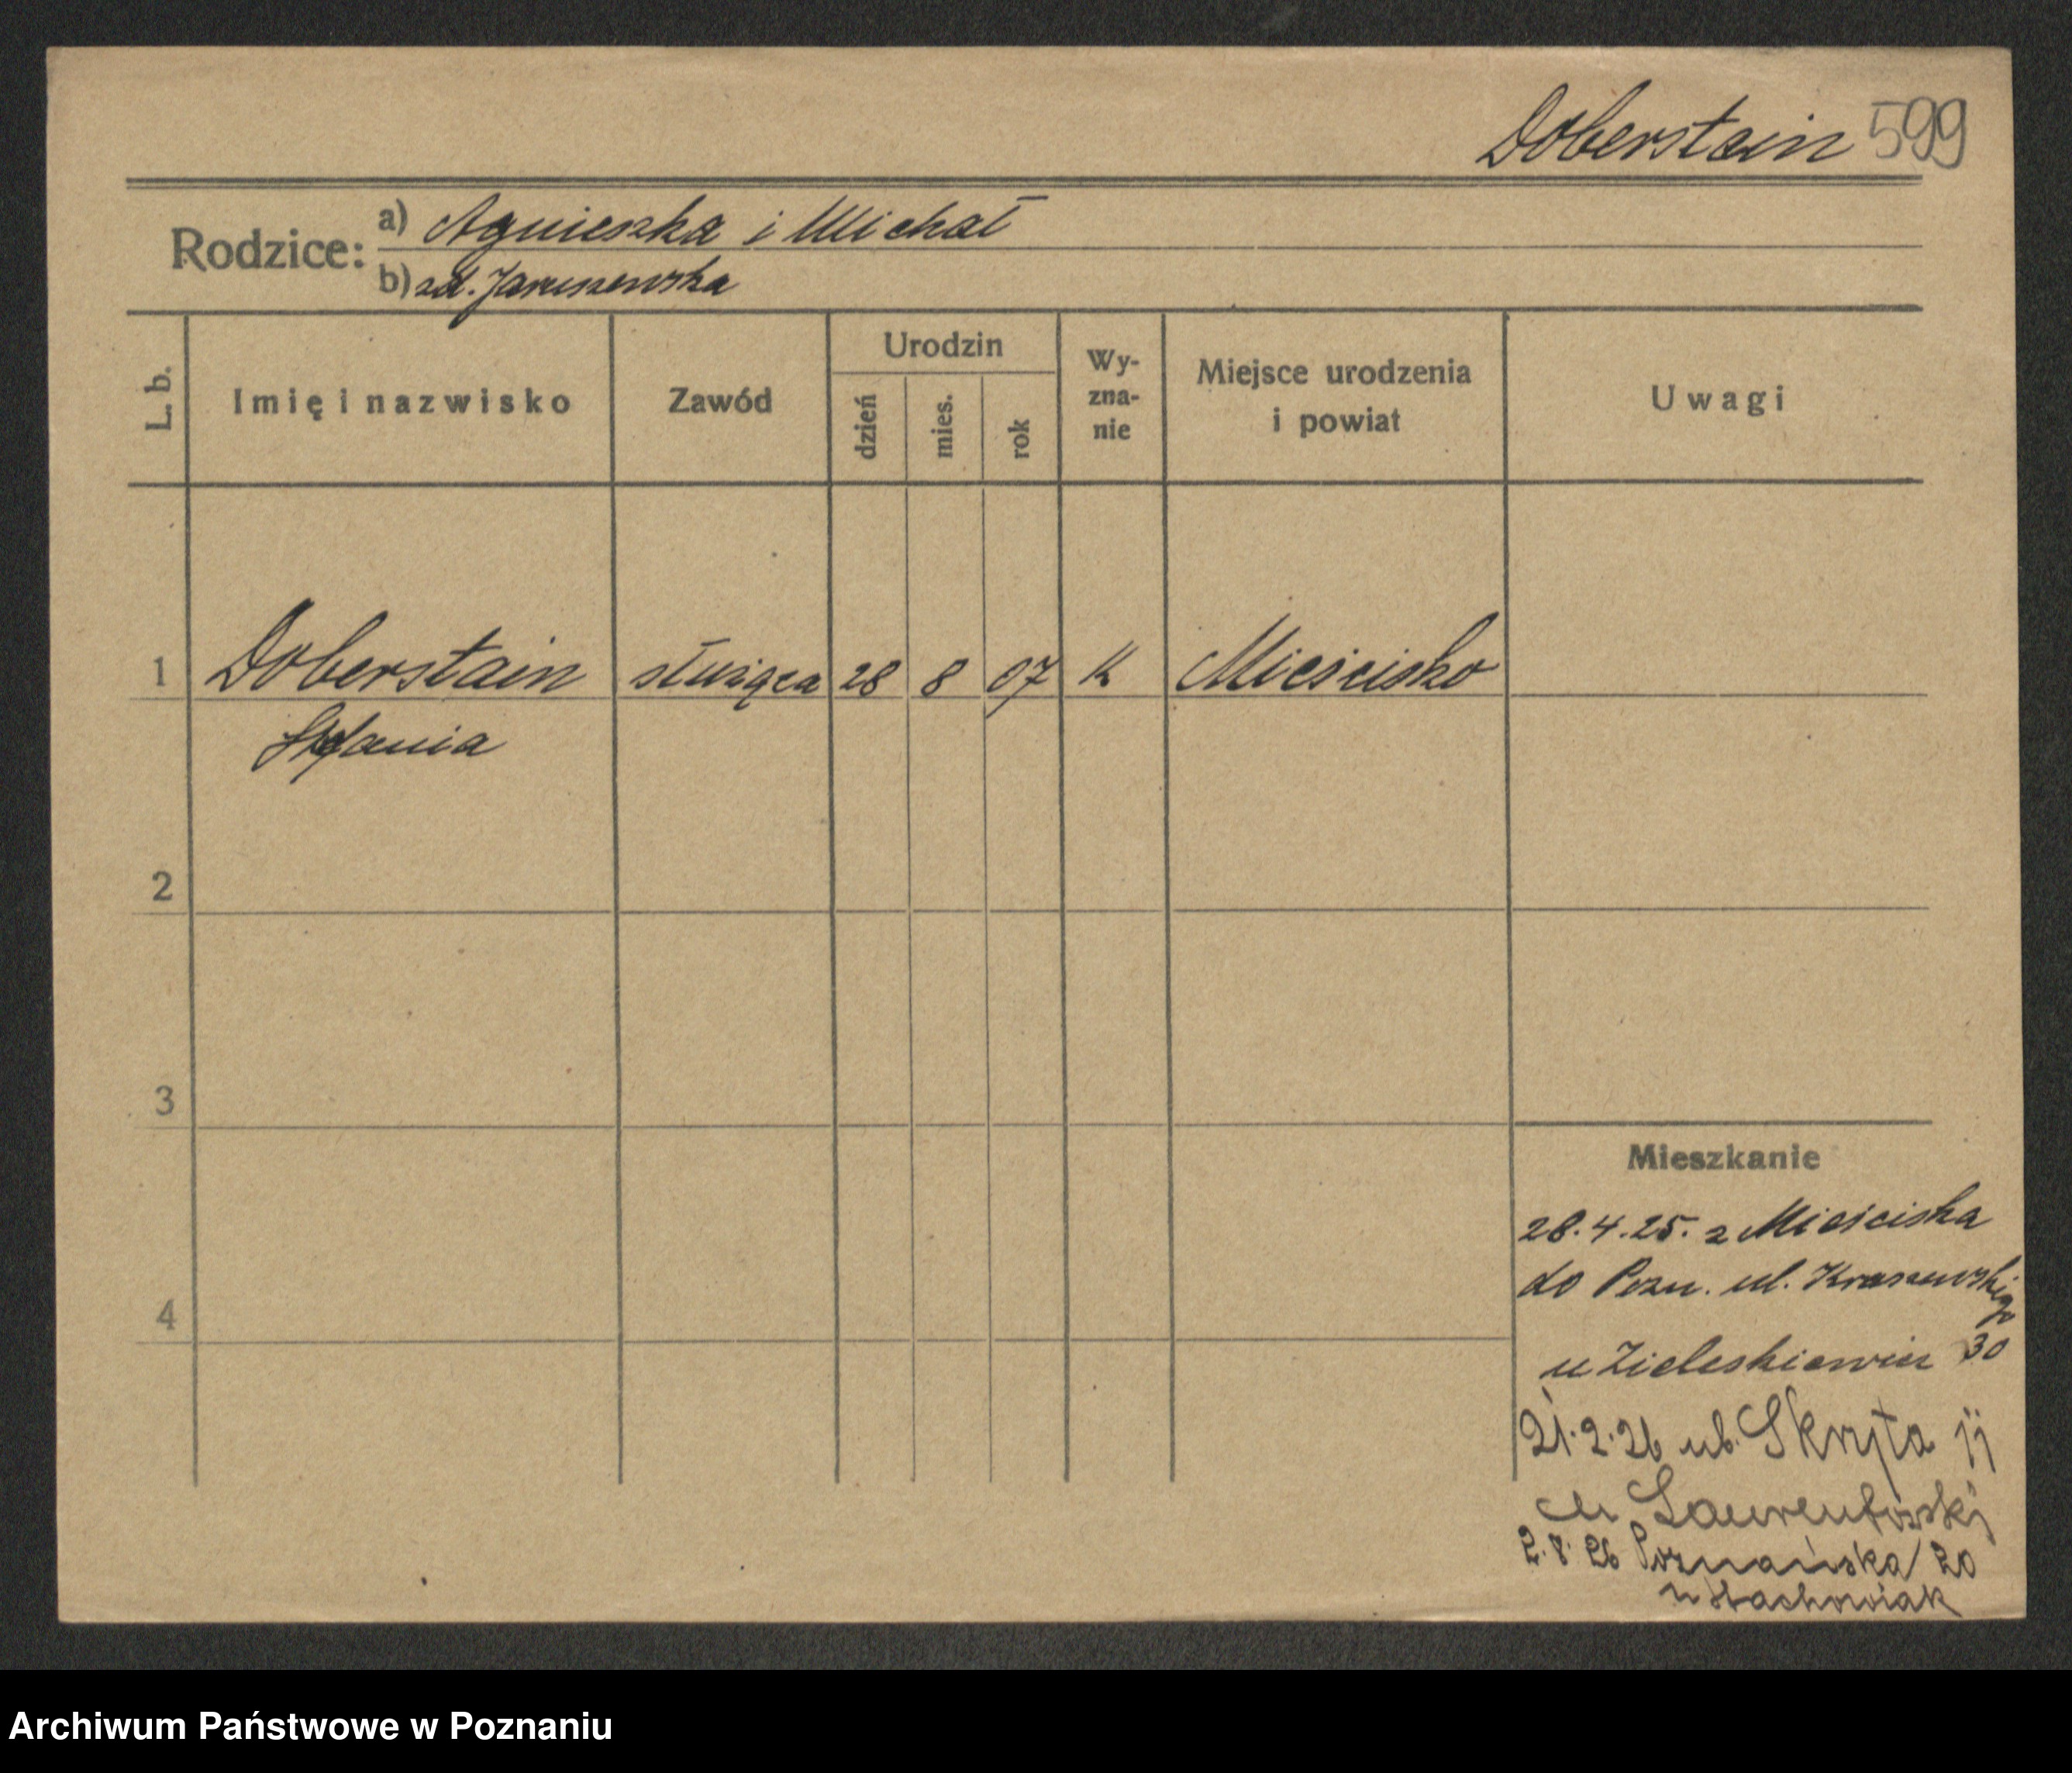 Doberstein 599
Rodzice: a) Agnieszka i Michał
b) zd. Jaruszewska
L. b.
Imię i nazwisko
Zawód
Urodzin
dzień
mies.
rok
Wy-
zna-
nie
Miejsce urodzenia
i powiat
Uwagi
1 Doberstain służąca 28 8 07 K Mieścisko
Stefania
2
3
Mieszkanie
28.4.25. z Mieściska
do Pozn. ul. Kraszewskiego
4
u 30
21.2.26 ul. Skryta
2.8.26 Poznańska 20
u Stachowiak
Archiwum Państwowe w Poznaniu